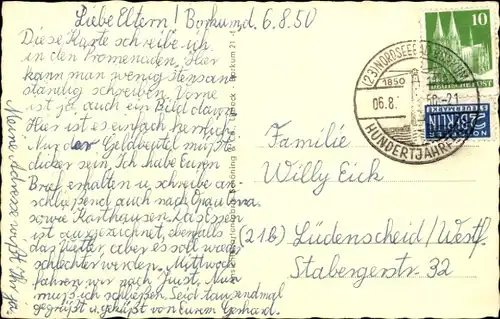 Liebe Eltern! Borkum, d. 6.8.50
Diese Karte schreibe ich
in den Promenaden. Hier
kann man wenig
ständig schreiben. Vorne
ist ja auch ein Bild davon.
Hier ist es einfach herrlich.
Nur der Geldbeutel müßte
dicker sein. Ich habe Euren
Brief erhalten u. schreibe an-
schließend auch nach
sowie Karthausen. Das Essen
ist ausgezeichnet, ebenfalls
das Wetter, aber es soll wieder
schlechter werden. Mittwoch
fahren wir nach Juist. Nun
muß ich schließen. Seid tausendmal
gegrüßt u. geküßt von Eurem Gerhard.
Meine Adresse wißt Ihr ja.
Borkum 21
(23) NORDSEEBAD BORKUM
1850
06.8.
HUNDERTJAHRFEIER
10
DEUTSCHE POST
2 BERLIN
NOTOPFER
STEUERMARKE
Familie
Willy Eick
(21b) Lüdenscheid/Westf.
Stabergerstr. 32